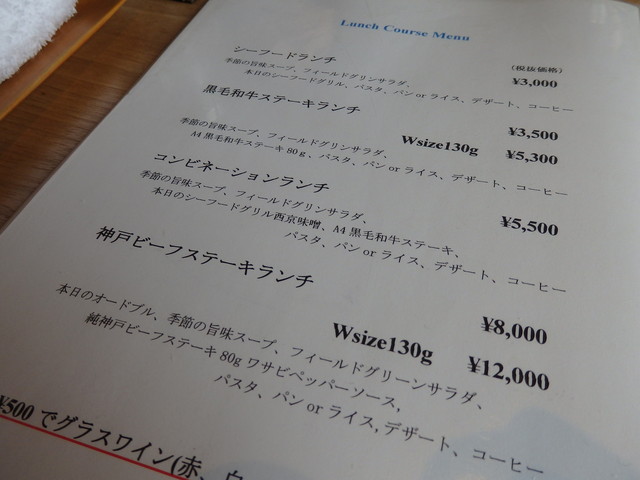 Lunch Course Menu
(税抜価格)
シーフードランチ ¥3,000
季節の旨味スープ、フィールドグリンサラダ、
本日のシーフードグリル、パスタ、パン or ライス、デザート、コーヒー
黒毛和牛ステーキランチ ¥3,500
Wsize130g ¥5,300
季節の旨味スープ、フィールドグリンサラダ、
A4 黒毛和牛ステーキ 80g、パスタ、パン or ライス、デザート、コーヒー
コンビネーションランチ ¥5,500
季節の旨味スープ、フィールドグリンサラダ、
本日のシーフードグリル西京味噌、A4 黒毛和牛ステーキ、
パスタ、パン or ライス、デザート、コーヒー
神戸ビーフステーキランチ ¥8,000
Wsize130g ¥12,000
本日のオードブル、季節の旨味スープ、フィールドグリーンサラダ、
純神戸ビーフステーキ 80g ワサビペッパーソース,
パスタ、パン or ライス,デザート、コーヒー
¥500 でグラスワイン(赤、白